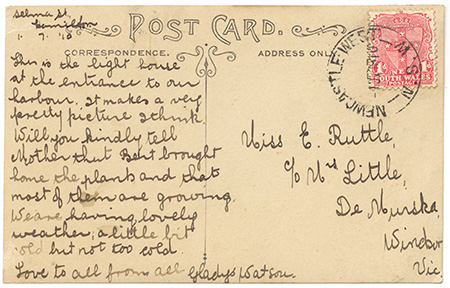 Selma St.
Hamilton
1. 7. 10
POST CARD.
CORRESPONDENCE.
ADDRESS ONLY
This is the light house
at the entrance to our
harbour. It makes a very
pretty picture I think.
Will you kindly tell
Mother that Bert brought
home the plants and that
most of them are growing.
We are having lovely
weather, a little bit
cold but not too cold.
Love to all from all Gladys Watson.
NEWCASTLE WEST
N.S.W
NEW SOUTH WALES
POSTAGE
Miss E. Ruttle,
C/o Mrs Little,
De Murska,
Windsor
Vic.